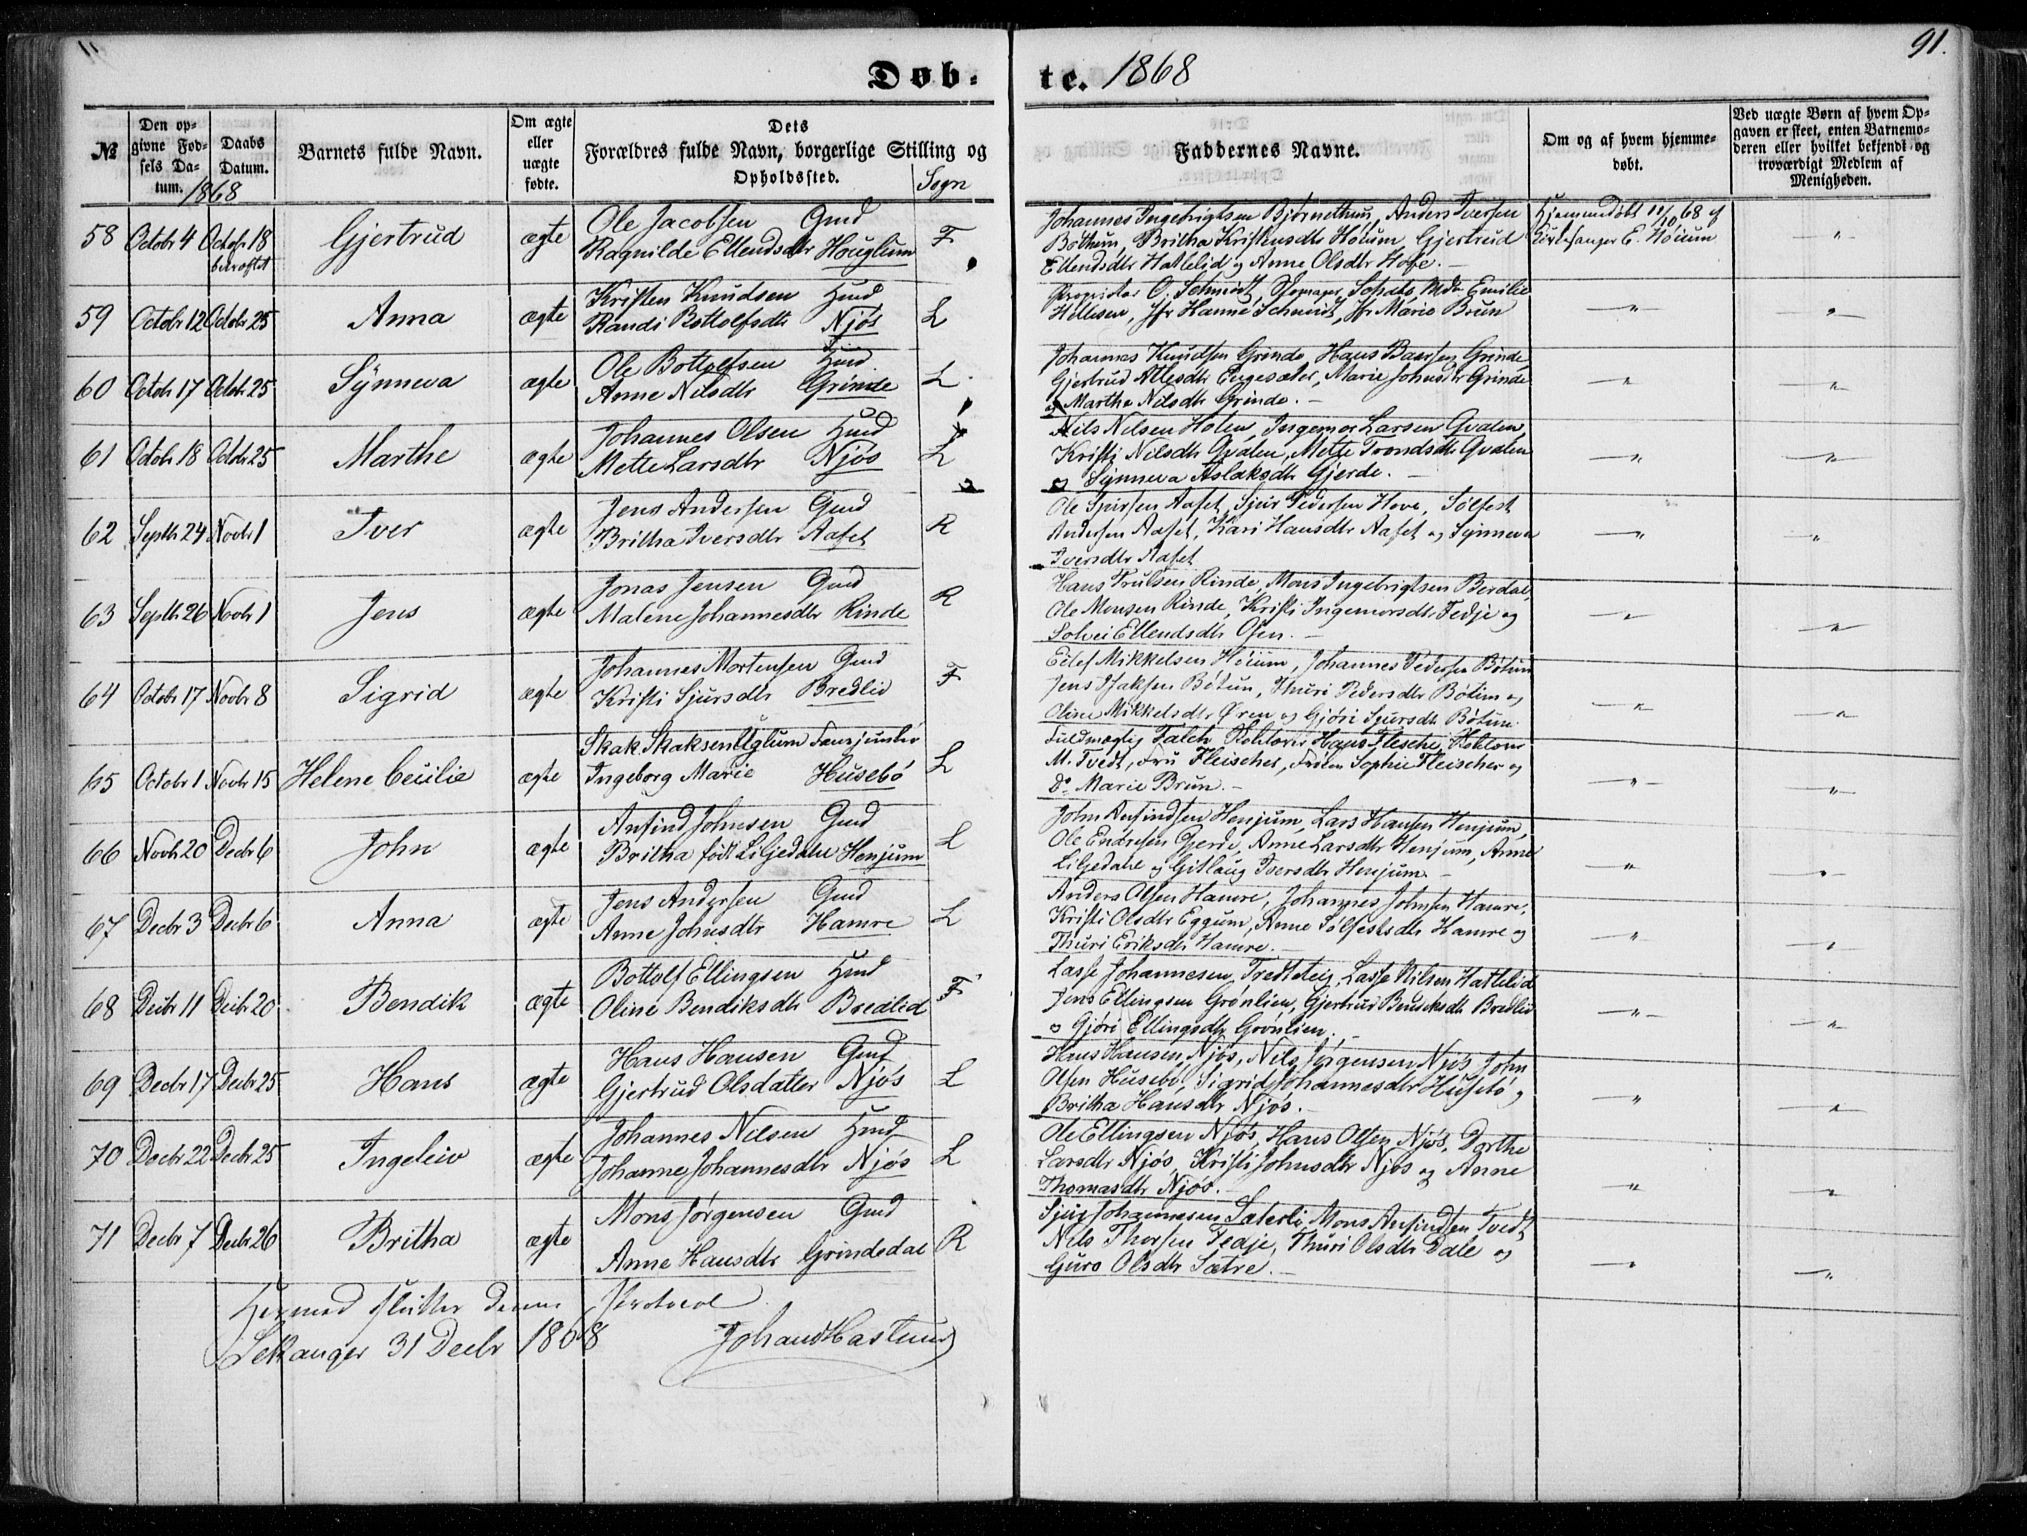 91.
Døb-
te. 1868
№
Den op-
givne Fød-
sels Da-
tum.
1868
Daabs
Datum.
Barnets fulde Navn.
Om ægte
eller
uægte
fødte.
Dets
Forældres fulde Navn, borgerlige Stilling og
Opholdssted.
Sogn
Faddernes Navne.
Om og af hvem hjemme-
døbt.
Ved uægte Børn af hvem Op-
gaven er skeet, enten Barnemo-
deren eller hvilket bekjendt og
troværdigt Medlem af
Menigheden.
58 Octobr 4 Octobr 18 Gjertrud ægte Ole Jacobsen Gmd F
bekræftet
Ragnilde Ellendsdtr Houglum
Johannes Ingebrigtsen Bjørnethun, Anders Iversen
Bøthun, Britha Kristensdtr Høium, Gjertrud
Ellendsdtr Hatlelid og Anne Olsdtr Hofe.
Hjemmedøbt 11/10 68 af
Kirkesanger E. Høium
59 Octobr 12 Octobr 25 Anna ægte Kristen Knudsen Hmd L
Randi Bottolfsdtr Njøs
Proprietær O. Schmidt, Mdm Emilie
Jfr Hanne Schmidt, Jfr Marie Brun
60 Octobr 17 Octobr 25 Synneva ægte Ole Bottolfsen Hmd L
Anne Nilsdtr Grinde
Johannes Knudsen Grinde, Hans Baarsen Grinde,
Gjertrud Atlesdtr Engesæter, Marie Johnsdtr Grinde
og Martha Nilsdtr Grinde.
61 Octobr 18 Octobr 25 Marthe ægte Johannes Olsen Hmd L
Mette Larsdtr Njøs
Nils Nilsen Holen, Ingemar Larsen Qvalen,
Kristi Nilsdtr Qvalen, Mette Trondsdtr Qvalen
og Synneva Aslaksdtr Gjerde.
62 Septbr 24 Novbr 1 Iver ægte Jens Andersen Gmd R
Britha Iversdtr Aafet
Ole Sjursen Aafet, Sjur Pedersen Hove, Sølfest
Andersen Aafet, Kari Hansdtr Aafet og Synneva
Iversdtr Aafet
63 Septbr 26 Novbr 1 Jens ægte Jonas Jensen Gmd R
Malene Johannesdtr Rinde
Hans Trulsen Rinde, Mons Ingebrigtsen Berdal,
Ole Monsen Rinde, Kristi Ingemorsdtr Fedje og
Solvei Ellendsdtr Osen.
64 Octobr 17 Novbr 8 Sigrid ægte Johannes Mortensen Gmd F
Kristi Sjursdtr Bredlid
Eilef Mikkelsen Høium, Johannes Pedersen Bøtun
Jens Isaksen Bøtun, Thuri Pedersdtr Bøtun og
Oline Mikkelsdtr Øren og Gjøri Sjursdtr Bøtun.
65 Octobr 1 Novbr 15 Helene Cecilie ægte Skak Skaksen Uglum L
Ingeborg Marie Husebø
Fuldmægtig Falch, Hans Flesche,
M. Tvedt, Fru Fleischer, Frøken Sophie Fleischer og
Do Marie Brun.
66 Novbr 20 Decbr 6 John ægte Anfind Johnsen Gmd L
Britha født Liljedale Henjum
John Anfindsen Henjum, Lars Hansen Henjum,
Ole Endresen Gjerde, Anne Larsdtr Henjum, Anne
Liljedale og Gitlaug Iversdtr Henjum.
67 Decbr 3 Decbr 6 Anna ægte Jens Andersen Gmd L
Anne Johnsdtr Hamre
Anders Olsen Hamre, Johannes Johnsen Hamre,
Kristi Olsdtr Eggum, Anne Sølfestsdtr Hamre og
Thuri Eriksdtr Hamre.
68 Decbr 11 Decbr 20 Bendik ægte Bottolf Ellingsen Hmd F
Oline Bendiksdtr Bredlid
Lasse Johannesen Tredteteig, Lasse Nilsen Hatlelid
Jens Ellingsen Grønlien, Gjertrud Bendiksdtr Bredlid
og Gjøri Ellingsdtr Grønlien.
69 Decbr 17 Decbr 25 Hans ægte Hans Hansen Gmd L
Gjertrud Olsdatter Njøs
Hans Hansen Njøs, Nils Jørgensen Njøs, John
Olsen Husebø, Sigrid Johannesdtr Husebø og
Britha Hansdtr Njøs.
70 Decbr 22 Decbr 25 Ingeleiv ægte Johannes Nilsen Hmd L
Johanne Johannesdtr Njøs
Ole Ellingsen Njøs, Hans Olsen Njøs, Dorthe
Larsdtr Njøs, Kristi Johnsdtr Njøs og Anne
Thomasdtr Njøs.
71 Decbr 7 Decbr 26 Britha ægte Mons Jørgensen Gmd R
Anne Hansdtr Grindedal
Sjur Johannesen Sæterli, Mons Anfindsen Tvedt,
Nils Thorsen Fedje, Thuri Olsdtr Dale og
Guro Olsdtr Sætre.
Hermed slutter denne Protocol
Lekanger 31 Decbr 1868 Johan d Hastund